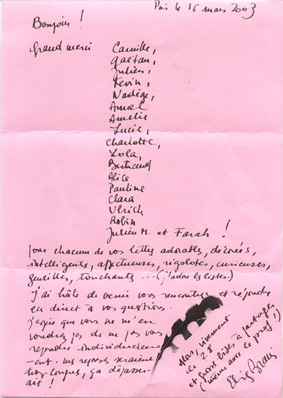 Paris le 16 mars 2003
Bonjour !
Grand merci Camille,
Gaëtan,
Julien,
Kevin,
Nadège,
Amal
Amelie
Lucie,
Charlotte,
Lola,
Bertrand
Alice
Pauline
Clara
Ulrich
Robin
Julien M. et Farah !
Pour chacune de vos lettres adorables,
intelligents, affectueuses, rigolotes, curieuses,
gentilles, touchantes... (j'adore les listes)
J'ai hâte de venir vous rencontrer et répondre
en direct à vos questions.
J'espère que vous ne m'en
voudrez pas de ne pas vous
répondre individuellem
ent. Mes réponses seraient
trop longues, ça dépasser-
ait !
Alors vivement
le 28
et gros bises à partager
(même avec le prof !)